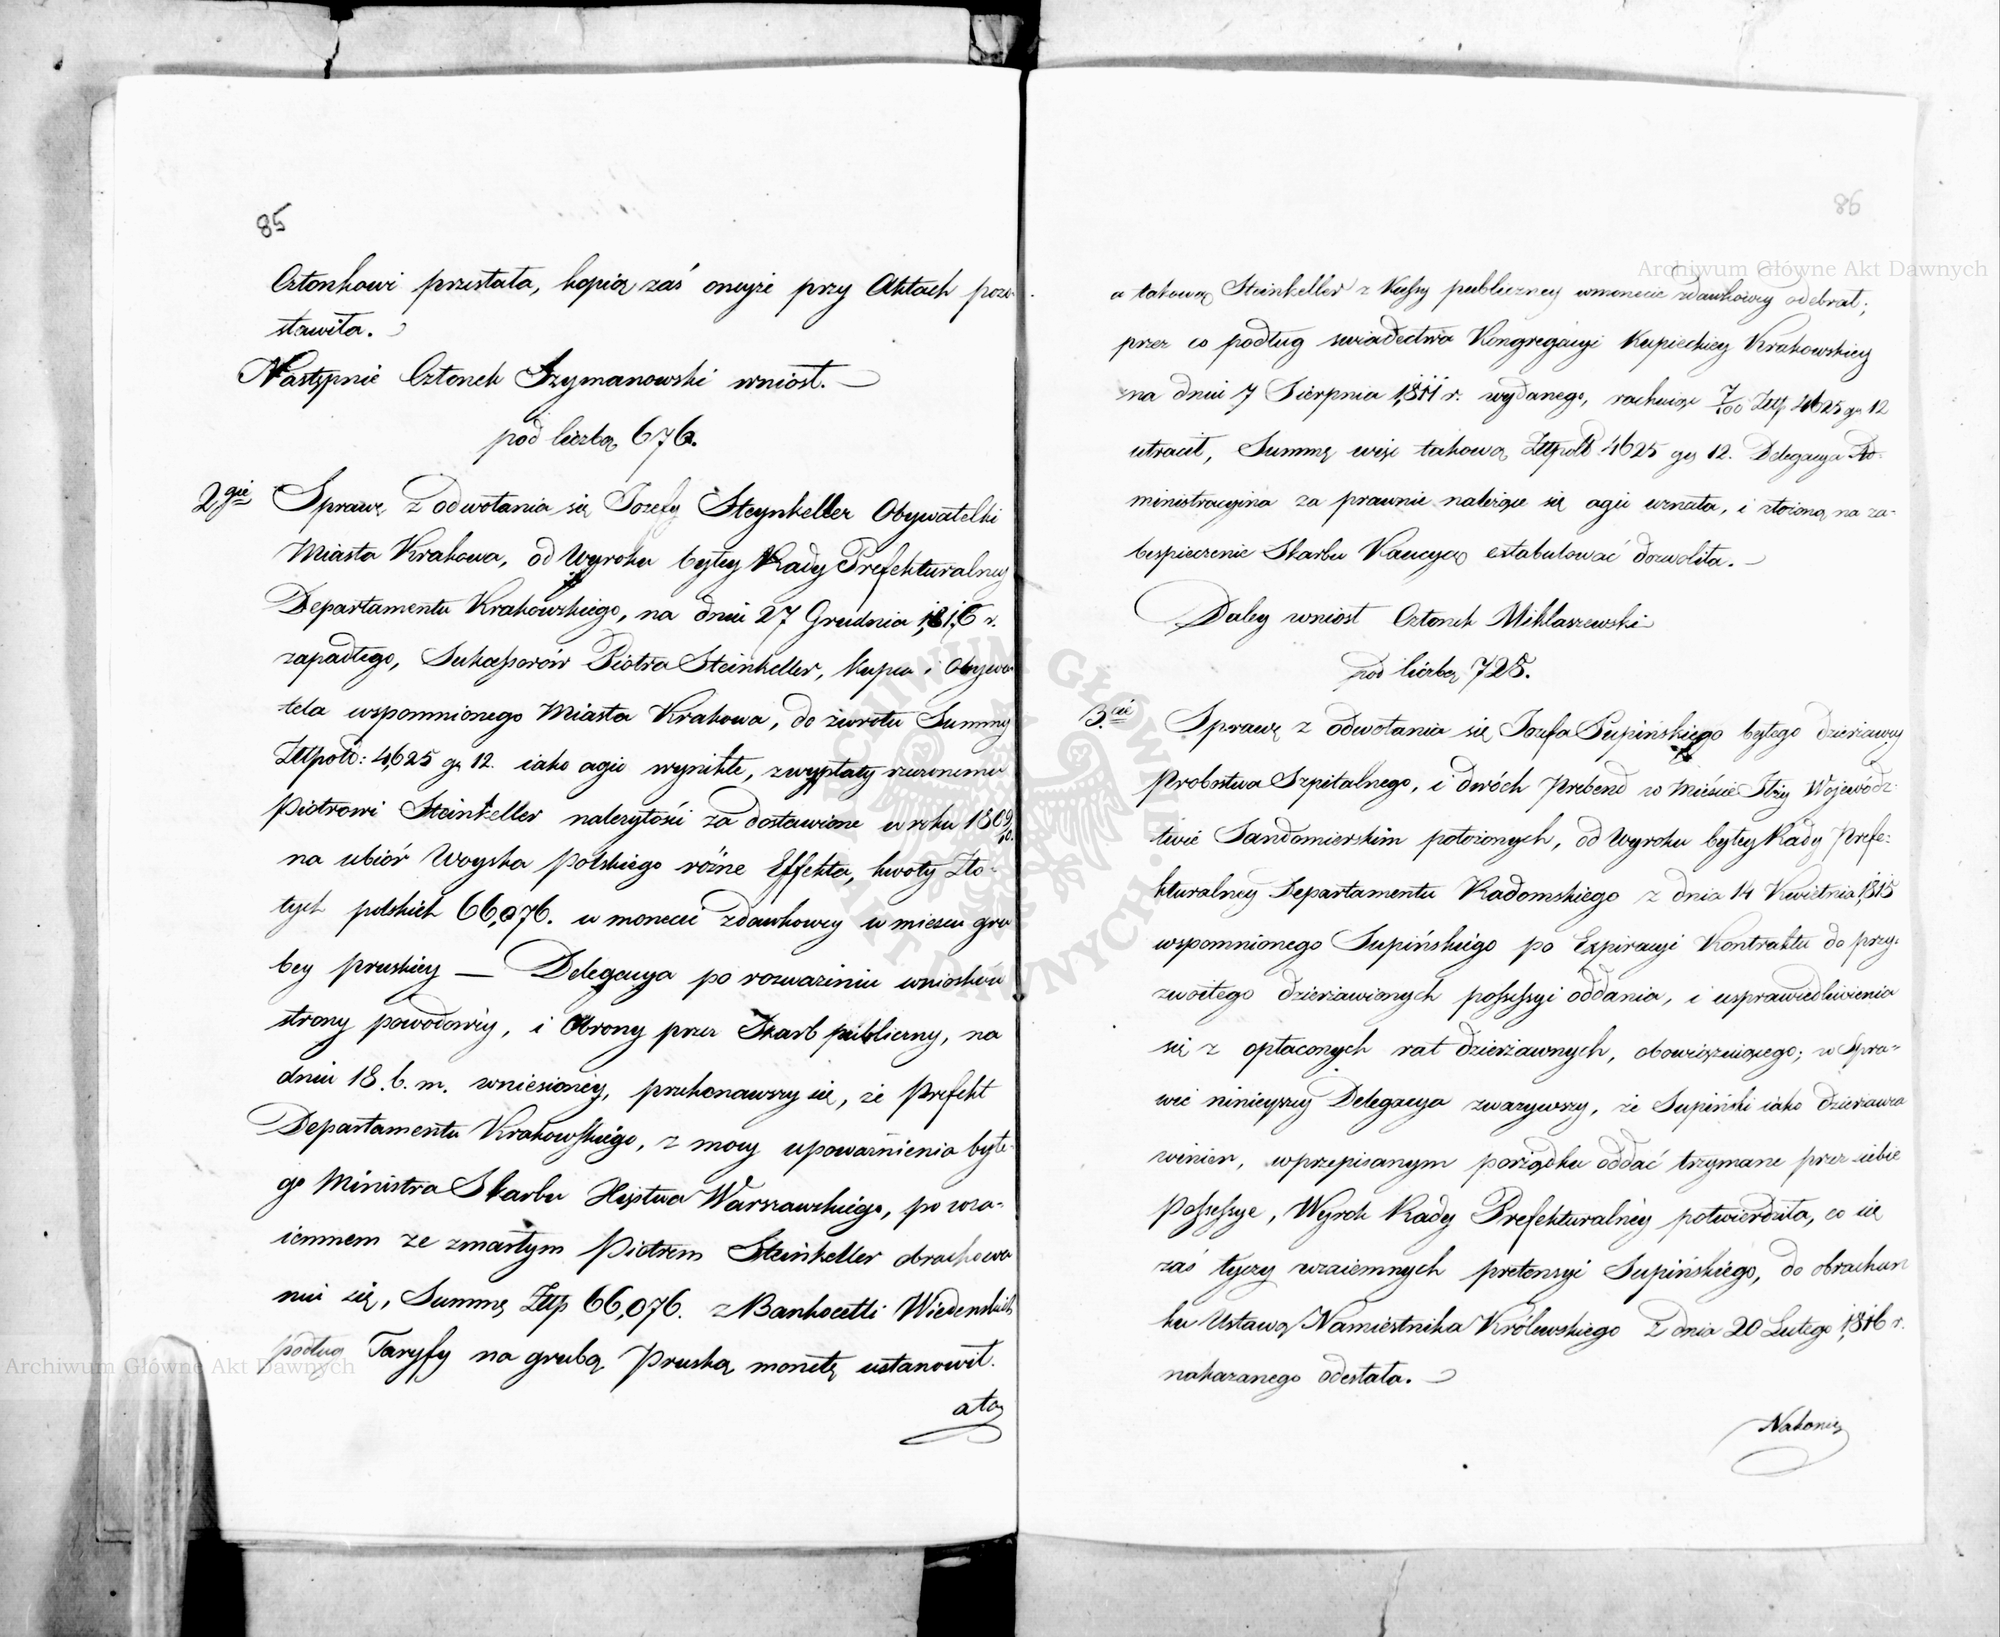 85
Członkowi przesłała, kopią zaś oneyże przy Aktach pozo-
stawiła.
Następnie Członek Szymanowski wniosł. —
pod liczbą 676.
2gie Sprawę z odwołania się Jozefy Steynkeller Obywatelki
Miasta Krakowa, od Wyroku byłey Rady Prefekturalney
Departamentu Krakowskiego, na dniu 27 Grudnia 1816 r.
zapadłego, Sukcessorów Piotra Steinkeller, Kupca i Obywa-
tela wspomnionego Miasta Krakowa, do zwrotu Summy
Złłpold: 4,625 gr 12. iako agio wynikłe, z wypłaty rzeczonemu
Piotrowi Steinkeller należytości za dostawione w roku 1809/10.
na ubiór Woyska Polskiego różne Effekta, kwoty Zło-
tych polskich 66,076. w monecie zdawkowey w mieyscu gru
bey pruskiey — Delegacya po rozważeniu wniosków
strony powodowey, i Obrony przez Skarb publiczny, na
dniu 18. b. m. wniesioney, przekonawszy się, że Prefekt
Departamentu Krakowskiego, z mocy upoważnienia byłe-
go Ministra Skarbu Xięstwa Warszawskiego, po wza-
iemnem ze zmarłym Piotrem Steinkeller obrachowa
niu się, Summę Złłp 66,076. z Bankocetli Wiedenskich
podług Taryfy na grubą Pruską monetę ustanowił.
a tą
86
a takową Steinkeller z Kassy publiczney w monecie zdawkowey odebrał;
przez co podług swiadectwa Kongregacyi Kupieckiey Krakowskiey
na dniu 7 Sierpnia 1811 r. wydanego, rachuiąc 7/100 Złłp 4625 gr 12
utracił, Summę więc takową Złłpold 4625 gr 12. Delegacya Ad-
ministracyina za prawnie należące się agio uznała, i złożoną na za-
bespieczenie Skarbu Kaucyą extabulować dozwoliła. —
Daley wniosł Członek Miklaszewski
pod liczbą 725.
3.cie Sprawę z odwołania się Jozefa Supińskiego byłego dzierżawcy
Probostwa Szpitalnego, i dwóch Prebend w Mieście Iłży Wojewódz-
twie Sandomierskim położonych, od Wyroku byłey Rady Prefe-
kturalney Departamentu Radomskiego z dnia 14 Kwietnia 1815
wspomnionego Supińskiego po Expiracyi Kontraktu do przy-
zwoitego dzierżawionych possessyi oddania, i usprawiedliwienia
się z opłaconych rat dzierżawnych, obowiązuiącego; w Spra-
wie ninieyszey Delegacya zważywszy, że Supiński iako dzierżawca
winien, w przepisanym porządku oddać trzymane przez siebie
Possessye, Wyrok Rady Prefekturalney potwierdziła, co się
zaś tyczy wzaiemnych pretensyi Supińskiego, do obrachun
ku Ustawą Namiestnika Królewskiego z dnia 20 Lutego 1816 r.
nakazanego odesłała. —
Nakoniec
Archiwum Główne Akt Dawnych
Archiwum Główne Akt Dawnych
ARCHIWUM GŁÓWNE AKT DAWNYCH